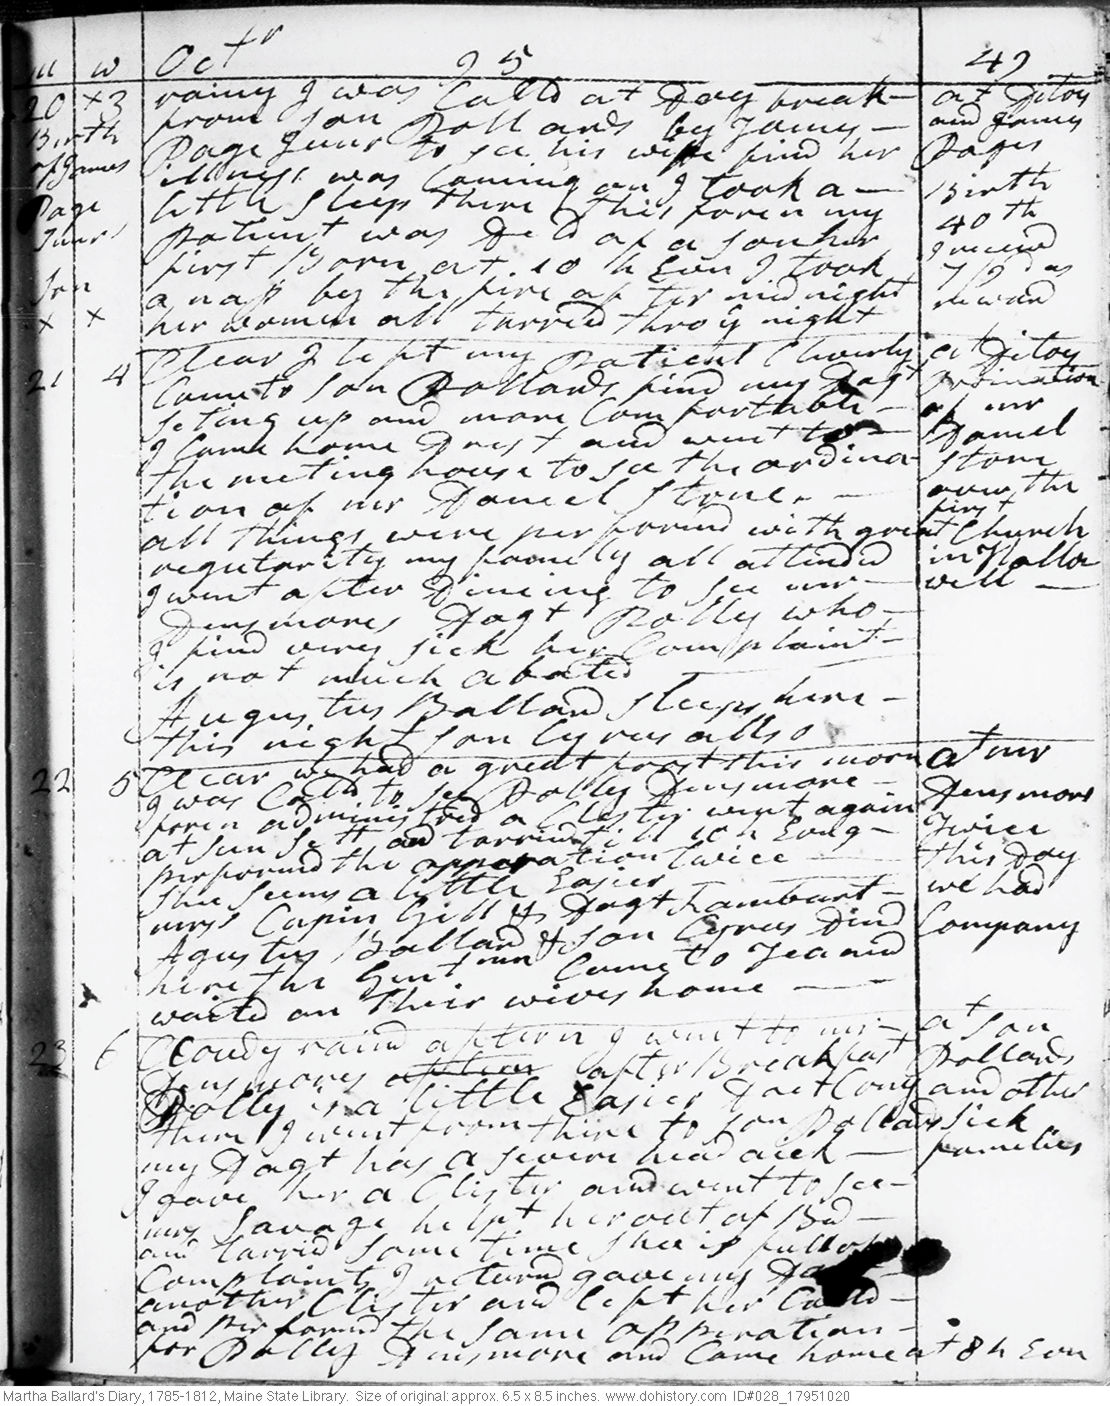 m w Octr 95 49
20 x 3 rainy I was Calld at Day break— at Ditoes
Birth from son Pollards by James— and James
of James Page Junr to see his wife find her Pages
illness was Coming on I took a— Birth
Page little sleep there this foren my 40th
Junrs patient was Deld of a son her I receivd
first Born at 10 h Evn I took 7/9 as
son a nap by the fire after midnight reward
x x her women all tarried thro ye night
21 4 Clear I left my patient Cleverly at Ditoes
Came to son Pollards find my Dagt ordination
seting up and more Comfortable— of mr
I Came home Drest and went to— Daniel
the meting house to see the ordina Stone
tion of mr Daniel Stone.— over the
all things were performd with great first Church
regularity my family all attended in Hallo
I went after Dineing to see mr— well—
Densmores Dagt Polly who—
I find very sick her Complaint—
is not much abated
Augustus Ballard sleeps here—
this night son Cyrus allso
22 5 Clear we had a great frost this morn at mr
I was Calld to see Polly Densmore— Densmors
foren administred a Clister went again Twice
at sun sett and tarried till 10 h Evng— this Day
performd the opperation twice— we had
shee seems a little Easier Company
mrss Capin Gill & Dagt Lambart—
Agustus Ballard & son Cyrus Dind
here the Gentmn Came to Tea and
waited on their wives home—
23 6 Cloudy raind aftern I went to mr— at son
Densmores after Breakfast Pollards
Polly is a little Easier Doct Cony and other
there I went from thire to son Pollards sick
my Dagt has a severe head ack— families
I gave her a Clister and went to see—
mrs Savage helpt her out of Bed—
and tarried some time shee is full of
Complaints I returnd gave my
another Clister and left her Calld—
and performd the same opperation—
for Polly Densmore and Came home at 8 h Evn
Martha Ballard's Diary, 1785-1812, Maine State Library. Size of original: approx. 6.5 x 8.5 inches. www.dohistory.com ID#028_17951020